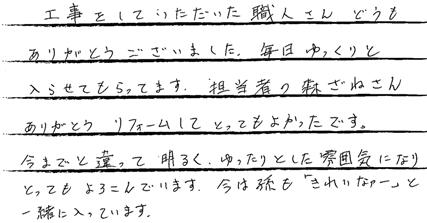 工事をしていただいた職人さん どうも
ありがとうございました。毎日ゆっくりと
入らせてもらってます。担当者の森ざねさん
ありがとう リフォームして とってもよかったです。
今までと違って 明るく、ゆったりとした雰囲気になり
とっても よろこんでいます。今は孫も「きれいなァー」と
一緒に入っています。